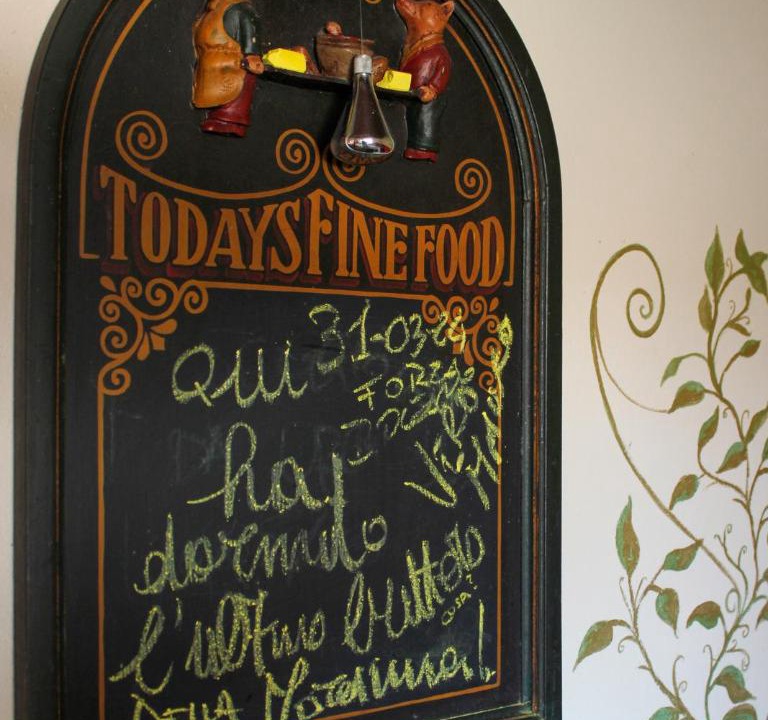 TODAYS FINE FOOD
31-03-24
QUI
ha
dormito
l'ultimo buttero
COSA?
DELLA Maremma!